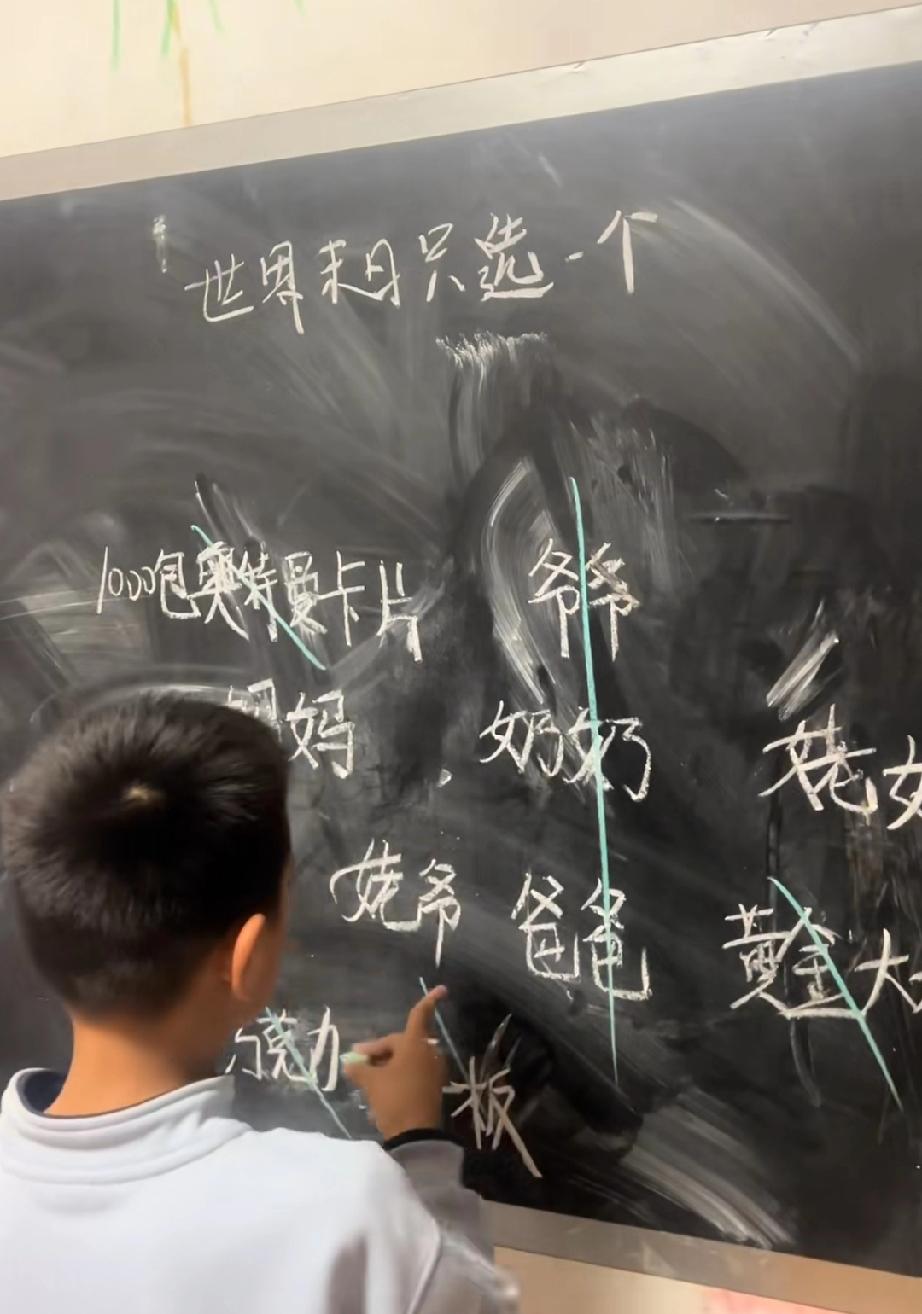 世界末日只选一个
1000包奥特曼卡片 爷爷
妈妈 奶奶 姥
姥爷 爸爸 黄金大
巧克力 板